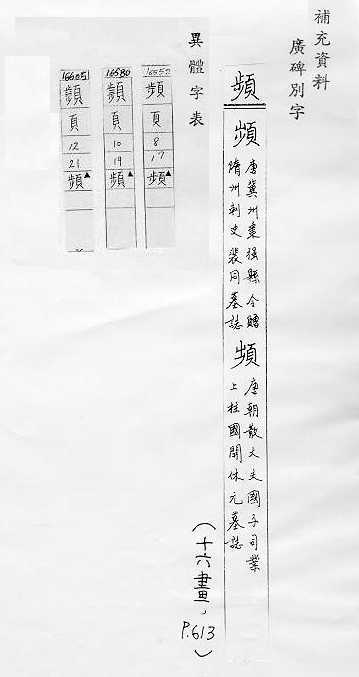 補充資料
廣碑別字
頻
頻 唐冀州棗強縣令贈
隋州刺史裴同墓誌
頻 唐朝散大夫國子司業
上柱國開休元墓誌
(十六畫, P.613)
異體字表
頁
8
17
頻▲
16580
頁
10
19
頻▲
16605
頁
12
21
頻▲